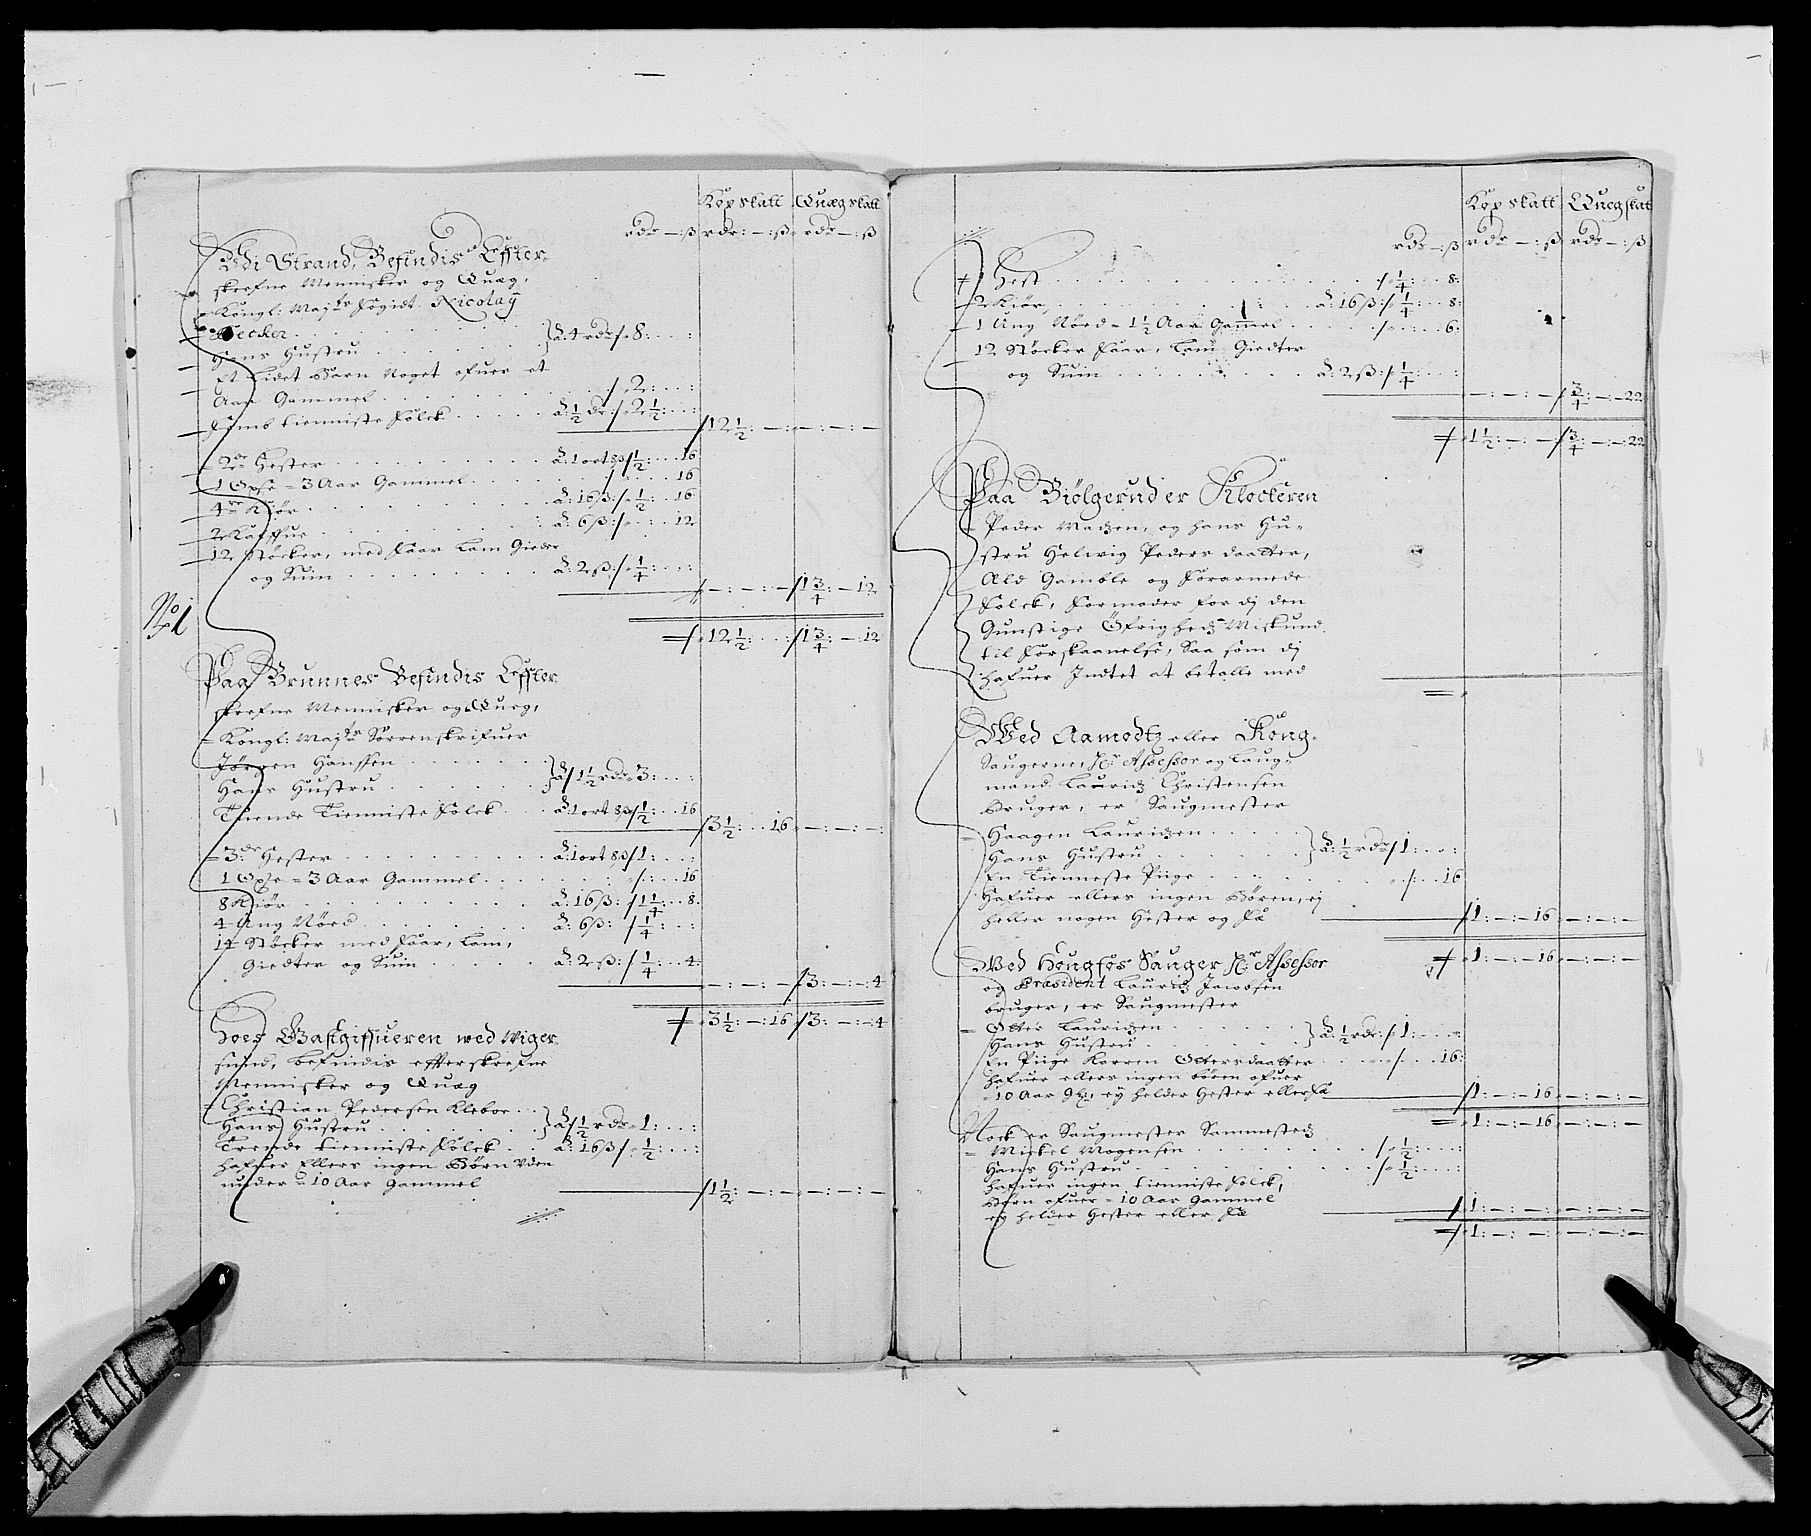 Kopskatt Quægskatt
rdr — : ß rdr : — : ß rdr — : ß
Wdi Strand, Befindis Effter
skrefne Mennisker og Quæg,
Kongl: Mayts fogidt Nicolay
Becker
Hans Hustru } â 4 rdr / 8 :
Et Lidet Barn Noget ofuer et
Aar Gammel / 2 :
femb tienniste folck â ½ dr : / 2½ :
/ 12½ : — : — : — : —
2de Hester â 1 ort 8ß / ½ : 16
1 Oxse = 3 Aar Gammel / 16
4re Kiør â 16ß : / ½ : 16
2 Kalffue â 6ß : / 12
12 støcker, med faar Lam Gieder
og Suin â 2ß : / ¼ :
/ — : — : — / 1¾ : — 12
No 1
/ 12½ : / 1¾ : — : 12
Paa Brunnes Befindis Effter
skrefne Mennisker og Queg,
Kongl: Mayts Sorrenskrifuer
Jørgen Hanssen
Hans Hustru } â / 1½ rdr 3 :
Tuende Tienniste folck â 1 ort 8ß / ½ : 16
/ 3½ : 16 — : — : —
3de Hester â 1 ort 8ß / 1 :
1 Oxse = 3 Aar Gammel / : 16
8 Kiør â 16ß : / 1¼ : 8
4 Ung Nød â 6ß : / ¼ :
14 Støcker med faar, Lam,
Giedter og Suin â 2ß : / ¼ : 4
— : — : — / 3 : — : 4
/ 3½ : — : 16 / 3 : — : 4
Hoes Gastgifueren wed Wiger
sund, befindis effterskrefne
Mennisker og Quæg
Christian Pedersen Klebor
Hans Hustru } â / ½ rdr 1 :
Trende tienniste folck â 16ß / ½ :
hafuer Ellers ingen Børn uden
under = 10 Aar Gammel
/ 1½ : — : — : — : —
Kopskatt Quegskat
rdr — : ß rdr — : ß rdr — : ß
1 Hest / ¼ : 8 :
2 Kiør â 16ß : / ¼ : 8 :
1 Ung Nød = 1½ Aar Gammel / 6 :
12 Støcker faar, Lam Giedter
og Suin â 2ß : / ¼ :
— : — : — / ¾ : — : 22
/ 1½ : — : — / ¾ : — : 22
Paa Biølgerud er Klockeren
Peder Madzen, og hans Hu-
stru Helwig Peders daatter,
Ald Gamble og forarmede
folck, formoder for dj den
Gunstige Øfrigheds Miskund
til forskaanelse, Saa som dj
hafuer Indtet at betalle med
Wed Aamodtz eller Kong-
Saugerne Hr Assessor og Laug-
mand Lauridz Christensen
Bruger, er Saugmester
Haagen Lauridzen
Hans Hustru } â ½ rdr / 1 :
En Tienneste Piige / : 16
Hafuer ellers ingen Børen, ej
heller nogen Hester og fæ
/ 1 : — : 16 — : — : —
/ 1 : — : 16 — : — : —
Wed Hengfos Sauger Hr Assessor
og Præsident Lauridz Jacobsen
bruger, er Saugmester
Otter Lauridzen
Hans Hustru } â ½ rdr : / 1 :
En Piige Karren Ottersdaatter / 16 :
hafuer ellers ingen børen ofuer
10 Aar Gl:, ey helder Hester eller fæ
/ 1 : — : 16 — : — : —
1 : — : 16 — : — : —
Nock er Saugmester Sammesteds
Mickel Mogensen / ½ :
Hans Hustru / ½ :
hafuer ingen tienniste folck,
Børn ofuer = 10 Aar Gammel
ey helder Hester eller fæ
/ 1 : — : — : — : —
/ 1 : — : — : — : —